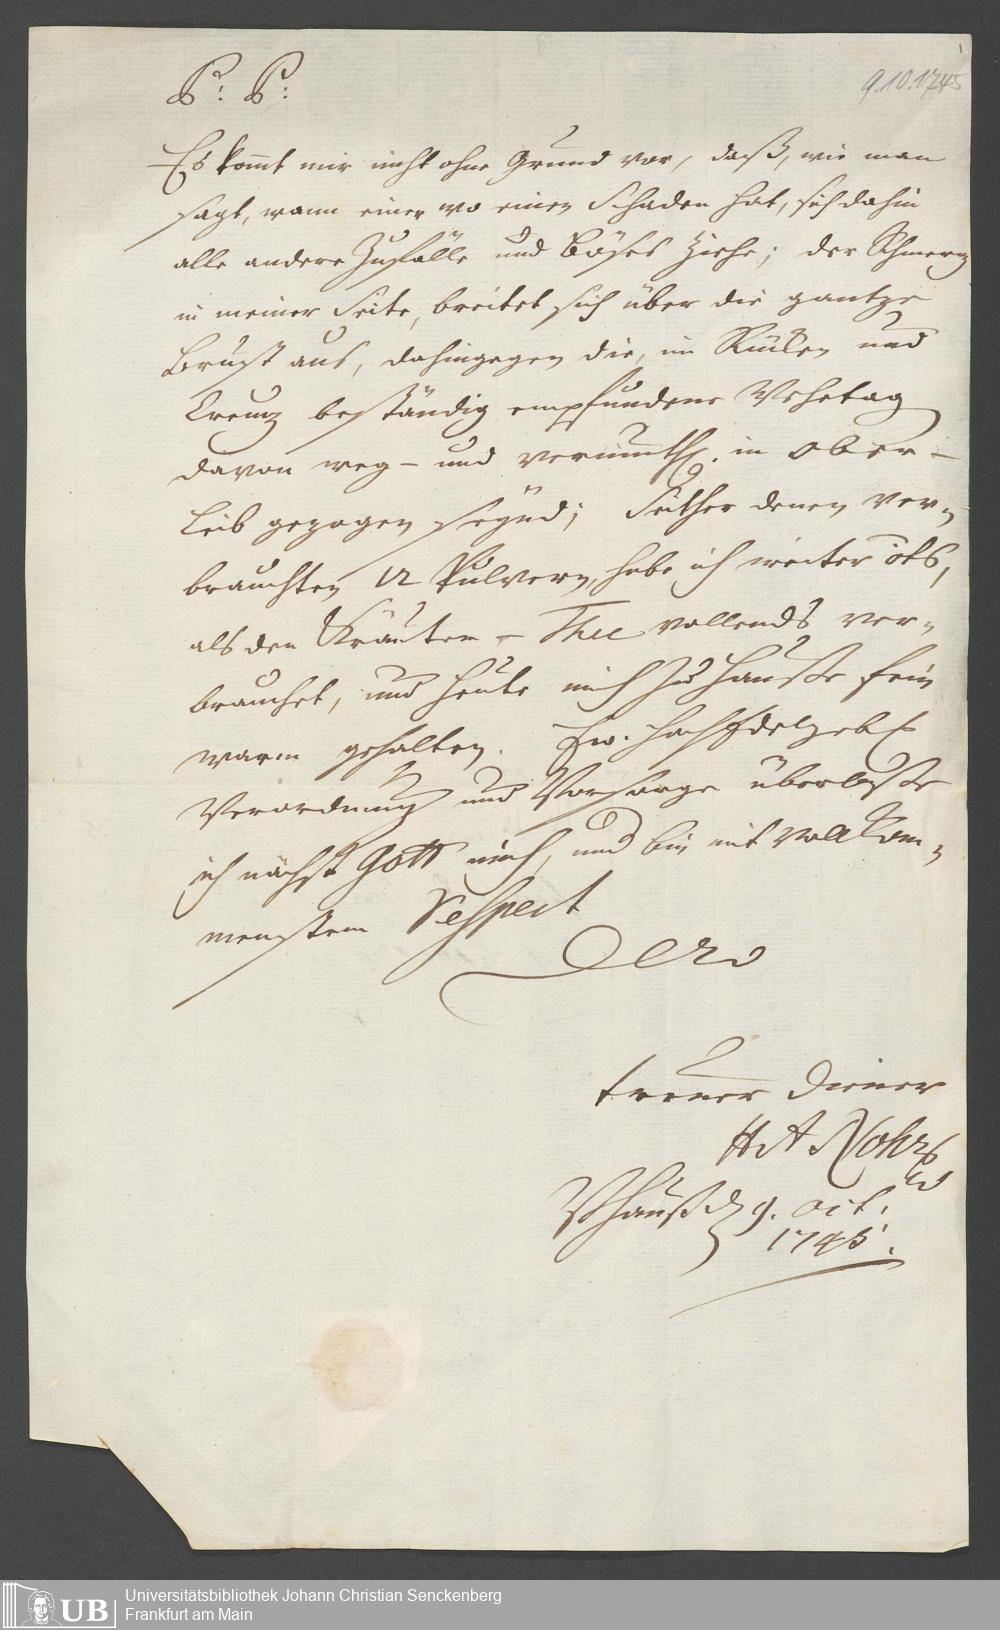 P: P:
9.10.1745
Es kom̅t mir nicht ohne Grund vor, daß, wie man
sagt, wann einer wo einen Schaden hat, sich dahin
alle andere Zufälle und Böses ziehe; der Schmertz
in meiner Seite, breitet sich über die gantze
Brust aus, dahingegen die, im Rücken und
Creutz beständig empfundene Wehetag
davon weg - und vermuthl. in Ober-
leib gezogen seynd; Seither denen ver-
brauchten 12 Pulvern, habe ich weiter nichts,
als den Kräuter-Thee vollends ver-
brauchet, und heute mich zu Hauße fein
warm gehalten. Ew. HochEdelgeb
Verordnung und Vorsorge überlaße
ich nächst Gott mich, und bin mit vollkom-
menstem Respect
Dero
treuer Diener
H A Rohr
Vhauß d 9. oct.
1745.
Universitätsbibliothek Johann Christian Senckenberg
Frankfurt am Main
UB